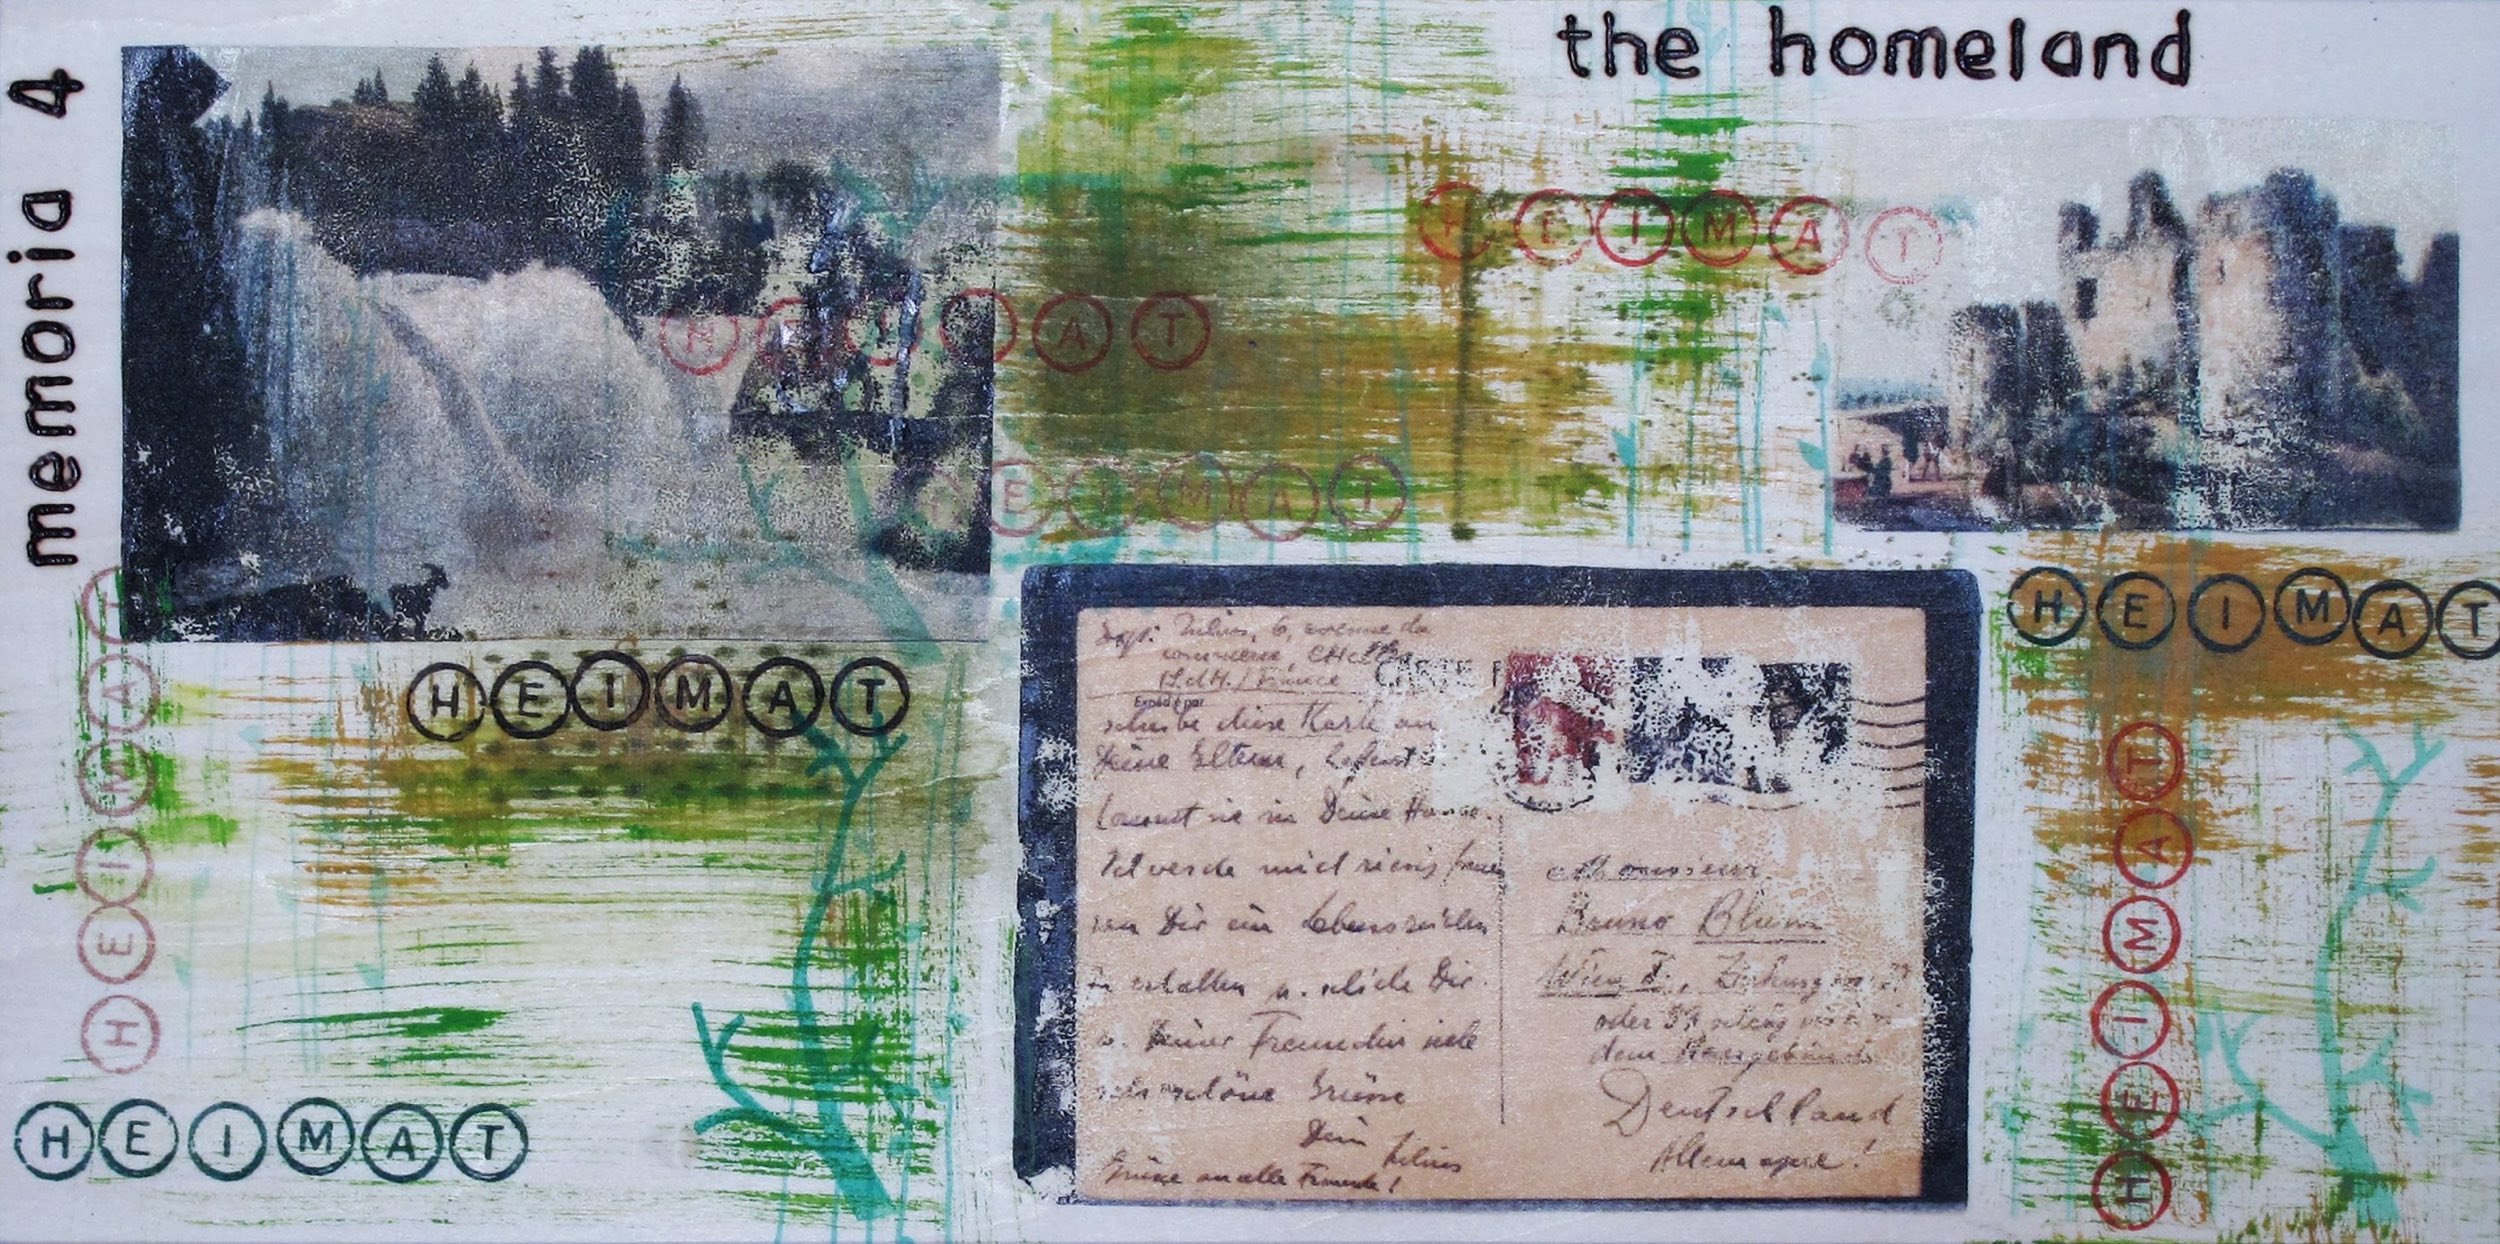 the homeland
memoria 4
HEIMAT
HEIMAT
HEIMAT
HEIMAT
HEIMAT
HEIMAT
HEIMAT
HEIMAT
Julius, 6, avenue du
commerce,
France
CARTE
Expédié par
diese Karte an
Deine Eltern,
kommt sie in Deine
Ich werde mich riesig freuen
von Dir ein Lebenszeichen
zu erhalten u. schicke Dir
u. Deiner Freundin viele
schöne Grüsse
Dein Julius
Grüsse an alle Freunde!
Monsieur
Bruno Blum
Wien
oder 39 schräg
dem
Deutschland
Allemagne!